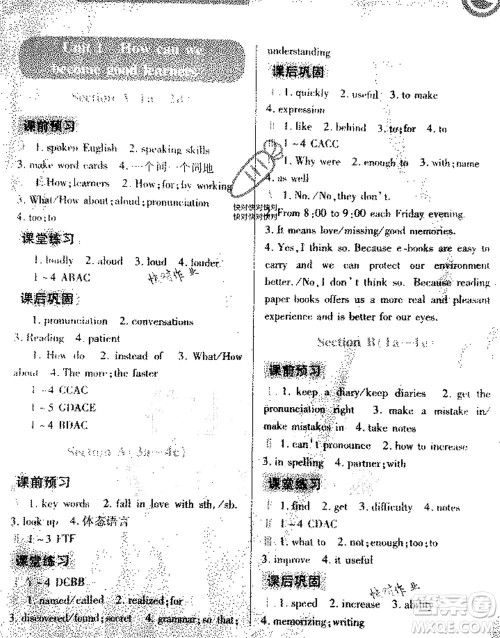 Unit 1 How can we
become good learners
Section A 1a—2d
课前预习
1. spoken English 2. speaking skills
3. make word cards 4. 一个词一个词地
1. How; learners 2. How; for; by working
3. What/How about; aloud; pronunciation
4. too; to
课堂练习
1. loudly 2. aloud 3. loud 4. louder
1~4 ABAC
课后巩固
1. pronunciation 2. conversations
3. Reading 4. patient
1. How do 2. instead of 3. What/How
about 4. The more; the faster
1~4 CCAC
1~5 GDACE
1~4 BDAC
Section A (3a—4c)
课前预习
1. key words 2. fall in love with sth./sb.
3. look up 4. 体态语言
1~3 FTF
课堂练习
1~4 DCBB
1. named/called 2. realized; for; had
3. discovered/found; secret 4. grammar; so; that;
understanding
课后巩固
1. quickly 2. useful 3. to make
4. expression
1. like 2. behind 3. to; for
1~4 CACC
1. Why were 2. enough to 3. what to
1. No./No, they don't.
2. From 8:00 to 9:00 each Friday evening.
3. It means love/missing/good memories.
4. Yes, I think so. Because e-books are
convenient and can protect our environment
better. /No, I don't think so. Because reading
paper books offers us a real and pleasant
experience and is better for our eyes.
Section B (1a—1e)
课前预习
1. keep a diary/keep diaries 2. get the
pronunciation right 3. make a mistake in/
make mistakes in 4. take notes
1. can't pronounce 2. how to increase
3. in spelling 4. partner; with
课堂练习
1. find 2. get 3. difficulty 4. notes
1~4 CDAC
1. Because 2. not; enough; to; to
课后巩固
1. speed 2. increase 3. ability
4. memorizing; writing
快对作业
快对快对快对
快对快对快对
快对作业
答案